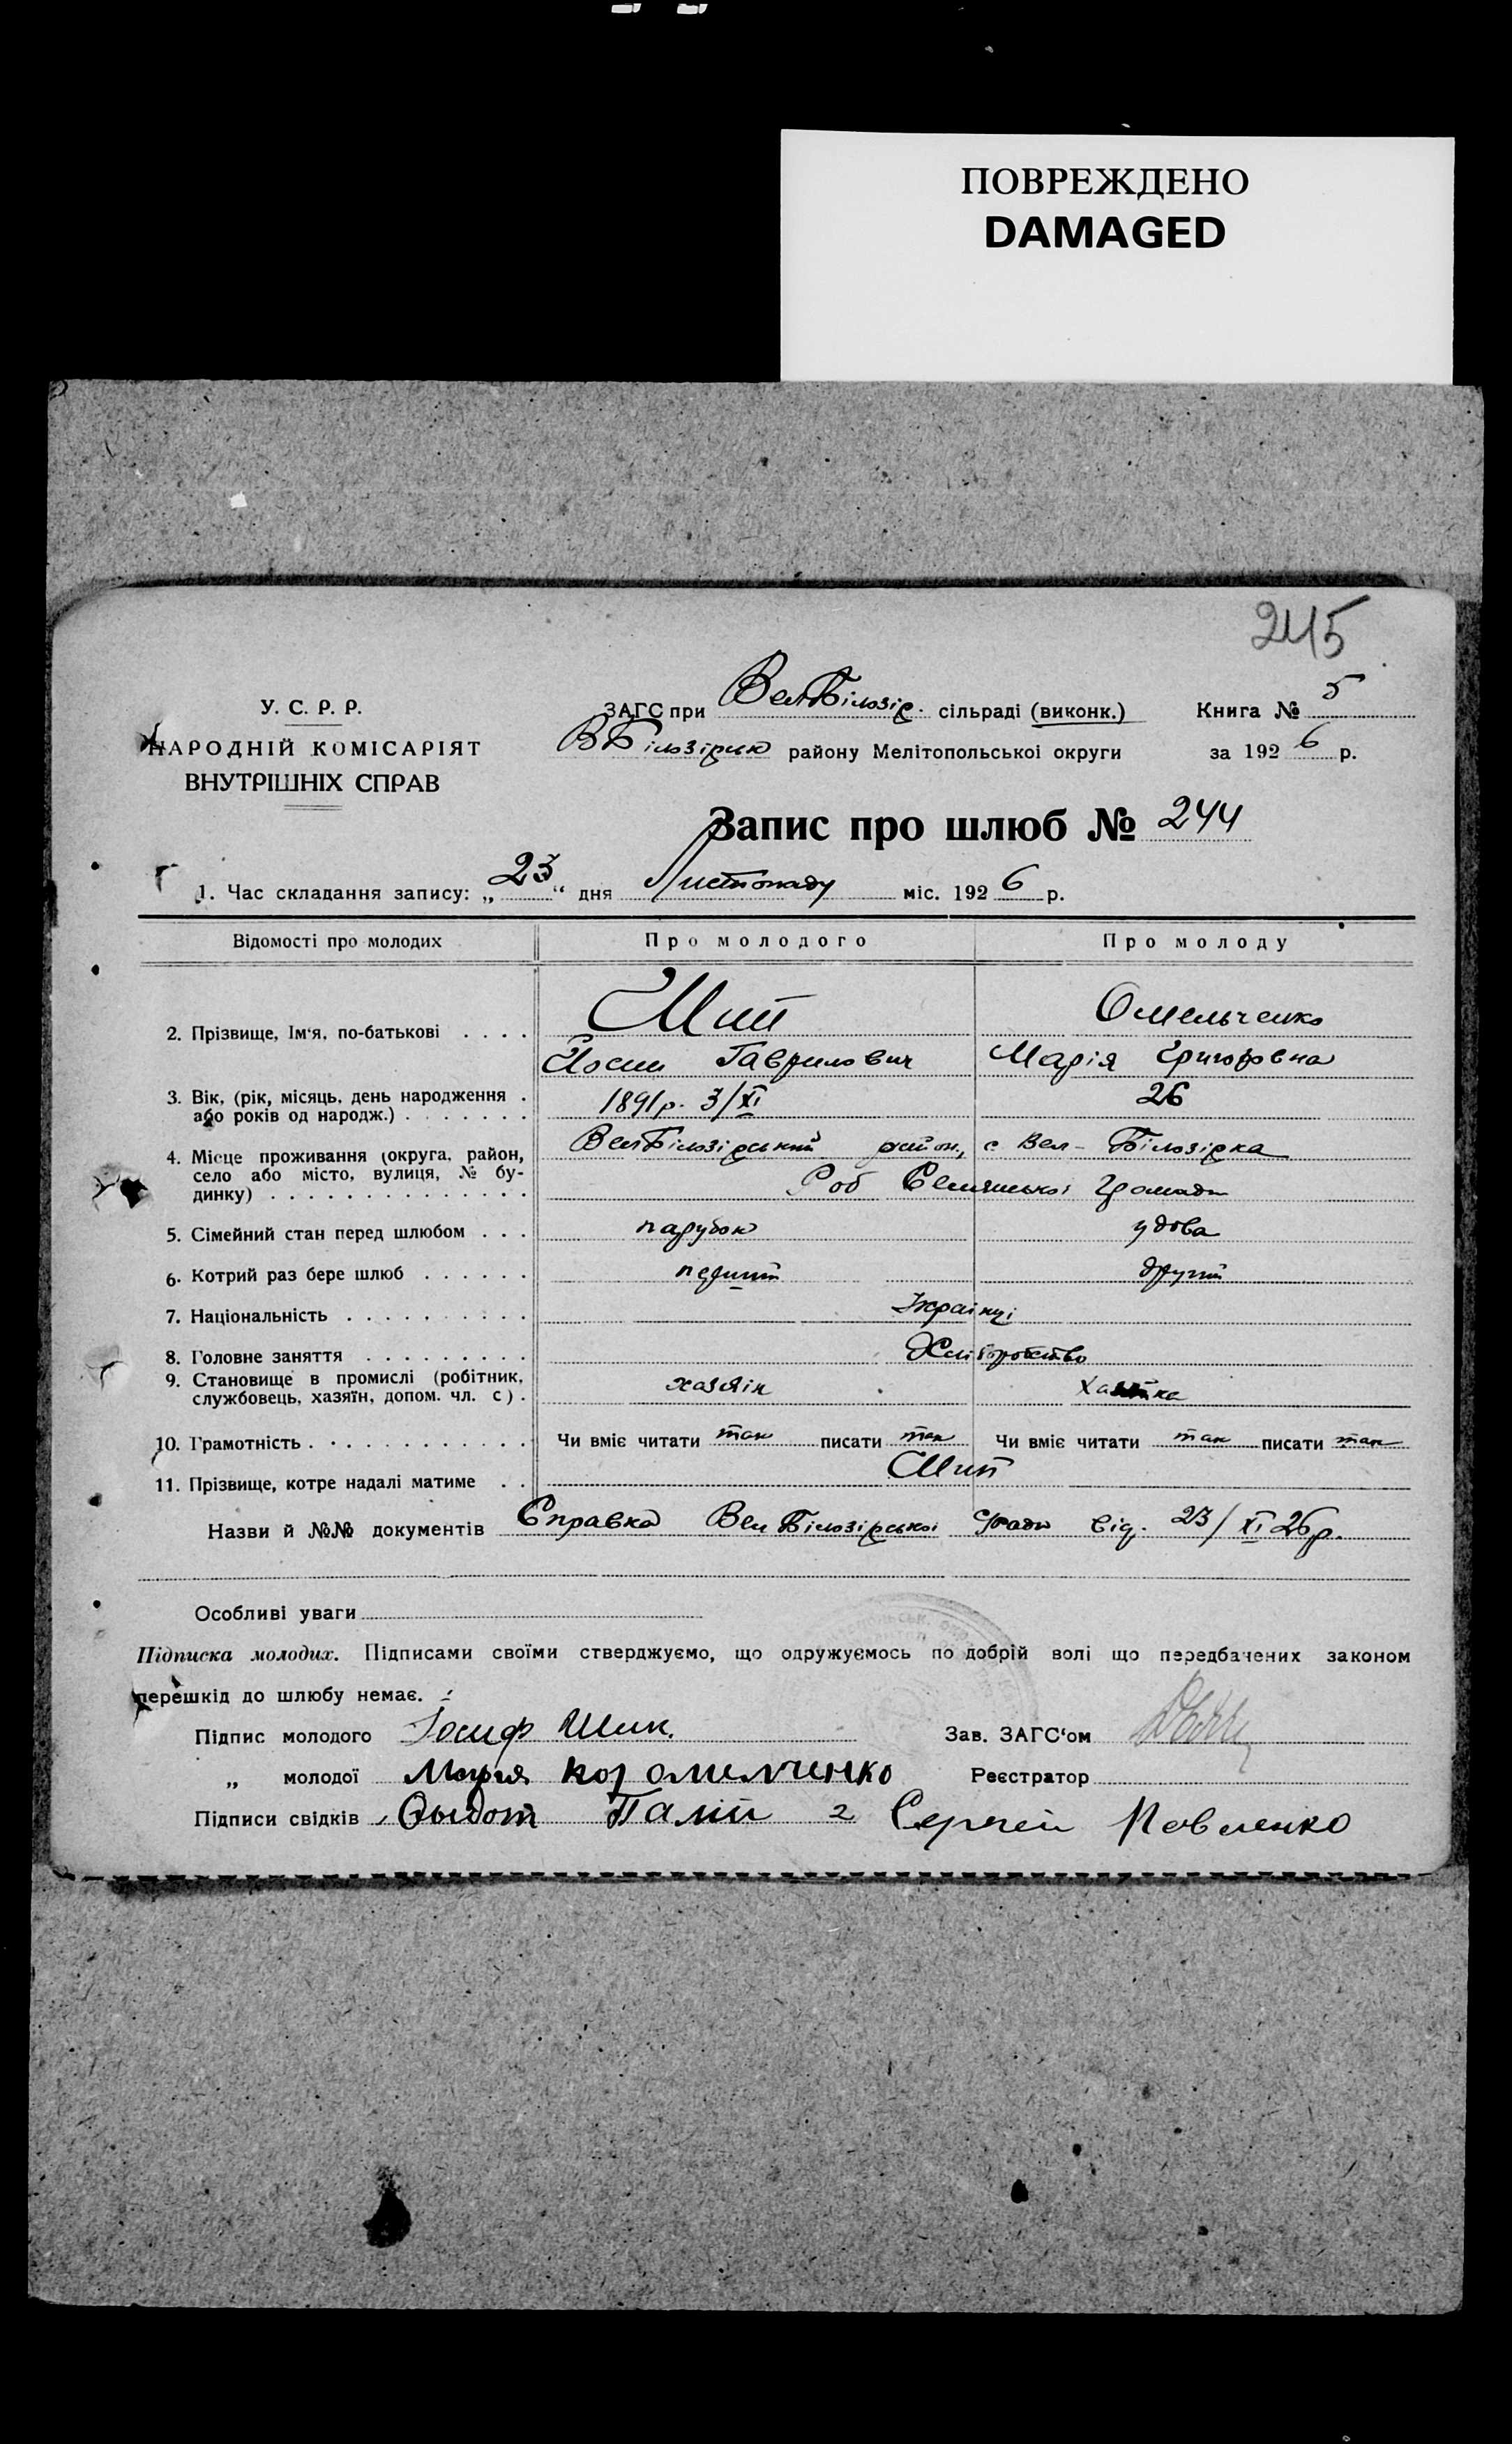 ПОВРЕЖДЕНО
DAMAGED
245
У. С. Р. Р.
НАРОДНІЙ КОМІСАРІЯТ
ВНУТРІШНІХ СПРАВ
ЗАГС при ВелБілозір. сільраді (виконк.) Книга № 5
ВБілозірк району Мелітопольської округи за 1926 р.
Запис про шлюб № 244
1. Час складання запису: „23“ дня Листопаду міс. 1926 р.
Відомості про молодих Про молодого Про молоду
2. Прізвище, Ім'я, по-батькові . . . . Омельченко
Йосип Гаврилович Марія Григоровна
3. Вік, (рік, місяць, день народження .
або років од народж.) . . . . . . . 1891р. 3/XI 26
4. Місце проживання (округа, район,
село або місто, вулиця, № бу-
динку) . . . . . . . . . . . . . .
ВелБілозірський район, с Вел-Білозірка
Громади
5. Сімейний стан перед шлюбом . . . парубок удова
6. Котрий раз бере шлюб . . . . . . перший другий
7. Національність . . . . . . . . . . Українці
8. Головне заняття . . . . . . . . . Хліборобство
9. Становище в промислі (робітник,
службовець, хазяїн, допом. чл. с) . хазяін
10. Грамотність . . . . . . . . . . . . Чи вміє читати так писати так Чи вміє читати так писати так
11. Прізвище, котре надалі матиме . .
Назви й №№ документів Справка ВелБілозірської Ради від. 23/XI 26р.
Особливі уваги
Підписка молодих. Підписами своїми стверджуємо, що одружуємось по добрій волі що передбачених законом
перешкід до шлюбу немає.
Підпис молодого Іосиф Зав. ЗАГС'ом
„ молодої Мария Реєстратор
Підписи свідків Палій 2 Сергей Павленко